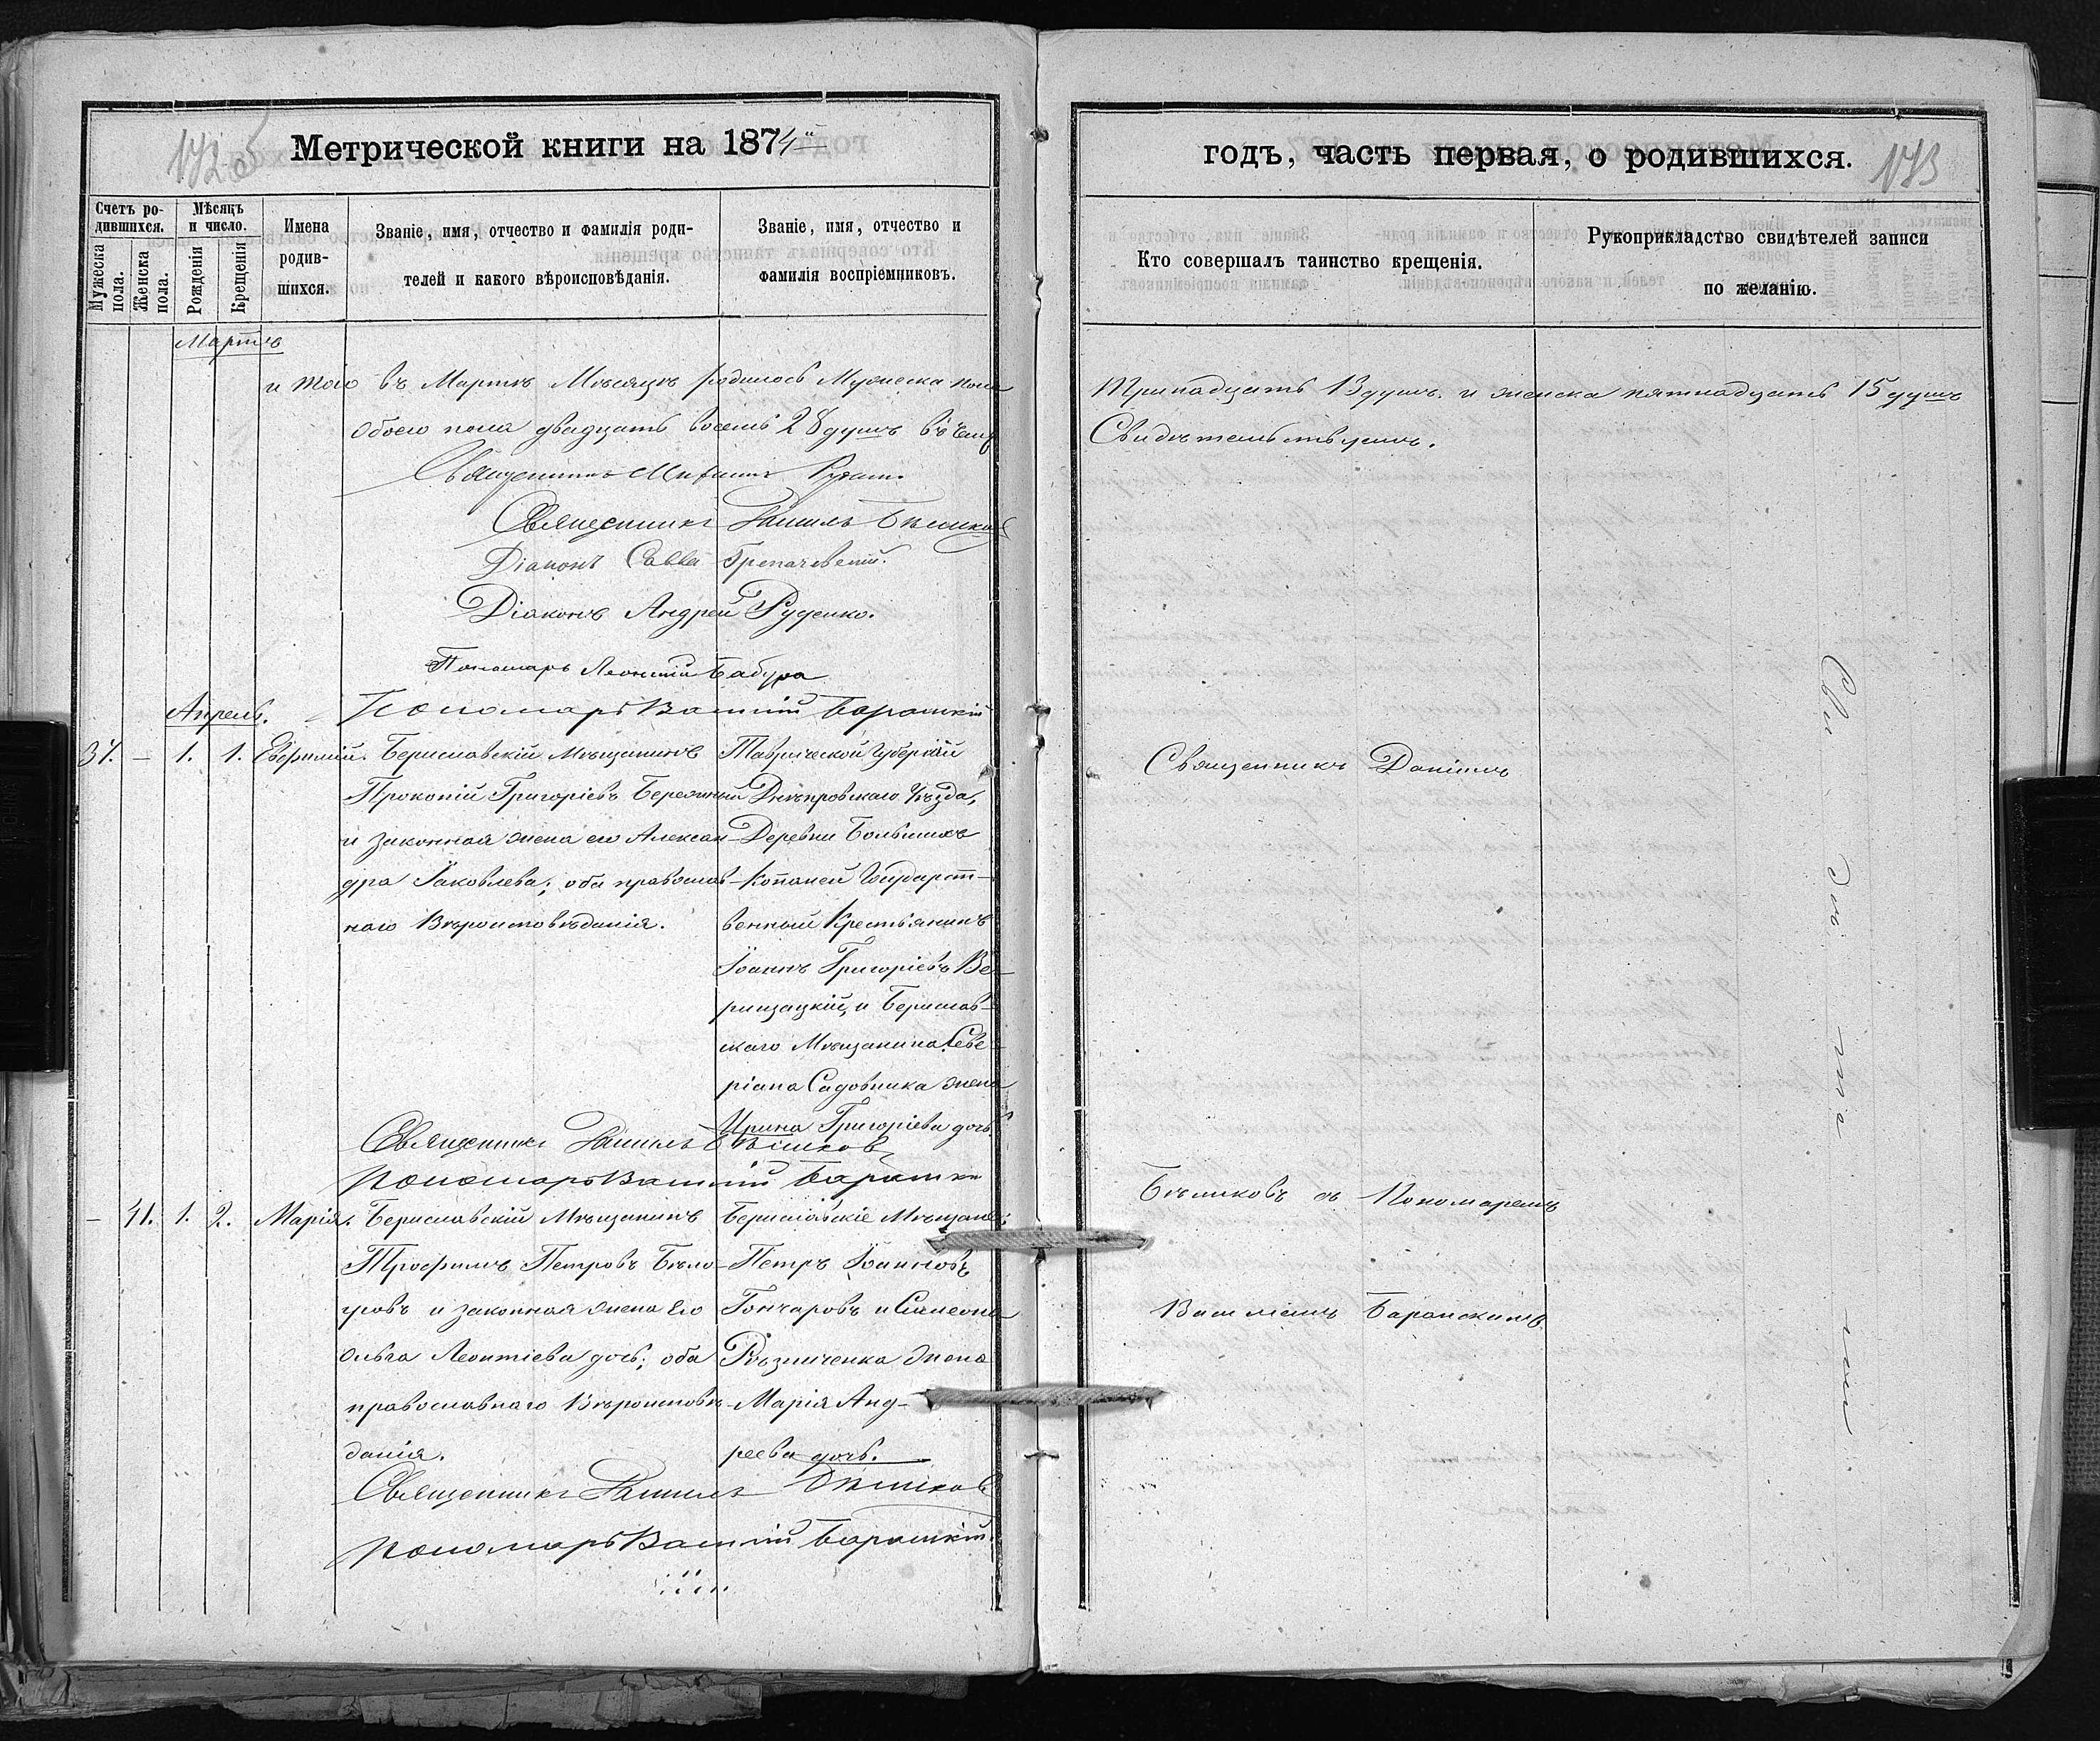 Метрической книги на 1874й
годъ, часть первая, о родившихся.
173
Счетъ ро-
дившихся.
Мужеска пола.
Женска пола.
Мѣсяцъ
и число.
Рожденія
Крещенія
Имена
родив-
шихся.
Званіе, имя, отчество и фамилія роди-
телей и какого вѣроисповѣданія.
Званіе, имя, отчество и
фамилія воспріемниковъ.
Кто совершалъ таинство крещенія.
Рукоприкладство свидѣтелей записи
по желанію.
Мартъ
и того въ Мартѣ Мѣсяцѣ родилось Мужеска пола Тринадцать 13 душъ. и женска пятнадцать 15 душъ
Обоего пола двадцать восемь 28 душъ въ чемъ Свидѣтельствуемъ.
Священникъ
Священникъ Даніилъ Бѣликовъ
Діаконъ Савва
Діаконъ Андрей Руденко.
Пономарь Леонтій Бабура
Пономарь Василій Баранскій
Апрель.
37. — 1. 1. Евфимій.
Бериславскій Мѣщанинъ
Прокопій Григоріевъ
и законная жена его Алексан-
дра Іаковлева; оба православ-
наго Вѣроисповѣданія.
Таврической Губерніи
Днѣпровскаго Уѣзда,
Деревни Большихъ
Копаней Государст-
венный Крестьянинъ
Іоаннъ Григоріевъ Ве-
рицацкій, и Берислав-
скаго Мѣщанина Севе-
ріана Садовника жена
Ирина Григоріева дочь.
Священникъ Даніилъ Бѣликовъ
Пономарь Василій Баранскій
— 41. 1. 2. Марія.
Бериславскій Мѣщанинъ
Трофимъ Петровъ Бѣло-
уровъ и законная жена Его
Ольга Леонтіева дочь; оба
православнаго Вѣроисповѣ-
данія.
Бериславскіе Мѣщане:
Петръ Іоанновъ
Гончаровъ и Симеона
Рѣзниченка жена
Марія Анд-
реева дочь.
Священникъ Даніилъ Бѣликовъ
Пономарь Василій Баранскій.
Священникъ Даніилъ
Бѣликовъ съ Пономаремъ
Василіемъ Баранскимъ